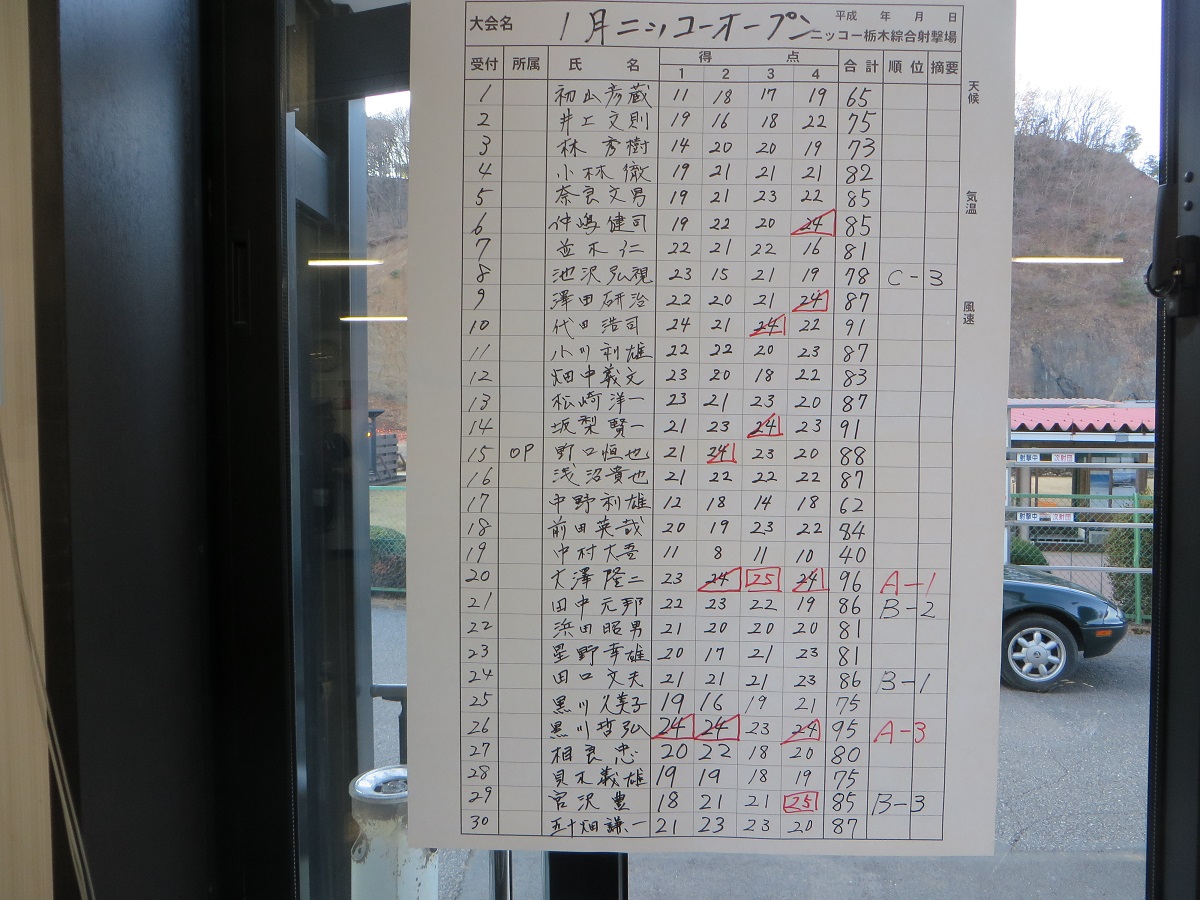 大会名 1月ニッコーオープン 平成 年 月 日
ニッコー栃木綜合射撃場
受付 所属 氏 名 得 点 合計 順位 摘要
1 2 3 4
1 初山彦蔵 11 18 17 19 65
2 井上文則 19 16 18 22 75
3 林 秀樹 14 20 20 19 73
4 小林 徹 19 21 21 21 82
5 奈良文男 19 21 23 22 85
6 仲嶋健司 19 22 20 24 85
7 並木 仁 22 21 22 16 81
8 池沢弘視 23 15 21 19 78 C-3
9 澤田研治 22 20 21 24 87
10 代田浩司 24 21 24 22 91
11 小川利雄 22 22 20 23 87
12 畑中義文 23 20 18 22 83
13 松崎洋一 23 21 23 20 87
14 坂梨賢一 21 23 24 23 91
15 OP 野口恒也 21 24 23 20 88
16 浅沼貴也 21 22 22 22 87
17 中野利雄 12 18 14 18 62
18 前田英哉 20 19 23 22 84
19 中村大吾 11 8 11 10 40
20 大澤隆二 23 24 25 24 96 A-1
21 田中元邦 22 23 22 19 86 B-2
22 浜田昭男 21 20 20 20 81
23 星野幸雄 20 17 21 23 81
24 田口文夫 21 21 21 23 86 B-1
25 黒川久美子 19 16 19 21 75
26 黒川哲弘 24 24 23 24 95 A-3
27 相良 忠 20 22 18 20 80
28 貝木義雄 19 19 18 19 75
29 宮沢 豊 18 21 21 25 85 B-3
30 五十畑謙一 21 23 23 20 87
天候
気温
風速
射撃中
射撃中